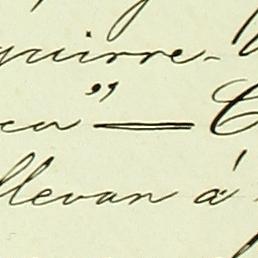 guirre-
ca" — C
llevan á